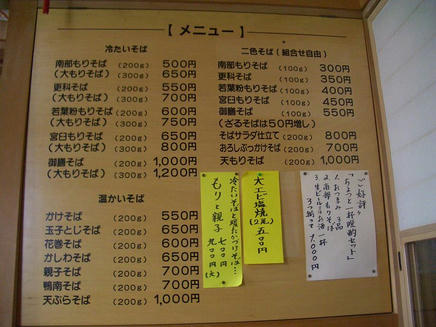 【メニュー】
冷たいそば
南部もりそば (200g) 500円
(大もりそば) (300g) 650円
更科そば (200g) 550円
(大もりそば) (300g) 700円
若葉粉もりそば (200g) 600円
(大もりそば) (300g) 750円
宮臼もりそば (200g) 650円
(大もりそば) (300g) 800円
御膳そば (200g) 1,000円
(大もりそば) (300g) 1,200円
温かいそば
かけそば (200g) 550円
玉子とじそば (200g) 650円
花巻そば (200g) 600円
かしわそば (200g) 650円
親子そば (200g) 700円
鴨南そば (200g) 700円
天ぷらそば (200g) 1,000円
二色そば(組合せ自由)
南部もりそば (100g) 300円
更科そば (100g) 350円
若葉粉もりそば (100g) 400円
宮臼もりそば (100g) 450円
御膳そば (100g) 550円
(ざるそばは50円増し)
そばサラダ仕立て (200g) 800円
おろしぶっかけそば (200g) 700円
天もりそば (200g) 1,000円
冷たいそばと暖かつけそば…
もりと親子
七〇〇円
九〇〇円(大)
大エビ塩焼(2尾)
五〇〇円
ご好評の
「ちょっと一杯晩酌セット」
1.おつまみ 一品
2.南部もりそば
3.生ビールorお酒 一杯
3つ揃って 1,000円